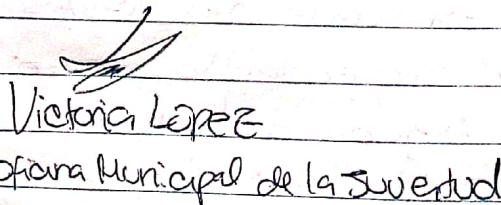 Victoria López
oficina Municipal de la Juventud